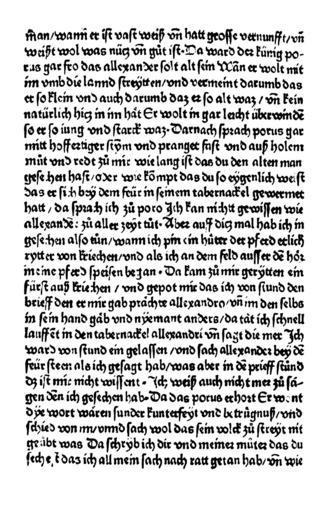 man/wann er ist vast weiß vn̄ hatt grosse vernunfft/vn̄
weißt wol was nücz vn̄ gůt ist. Da ward der künig po⸗
rus gar fro das allexander so lt alt sein Wān er wolt mit
im vmb die lannd streytten/vnd vermeint darumb das
er so klein vnd auch darumb daz er so alt waz/ vn̄ kein
natürlich hicz in im hāt Er wolt in gar leicht überwindē
so er so iung vnd starck waz. Darnach sprach porus gar
mitt hoffertiger stym vnd pranget fast vnd auß hohem
můt vnd redt zů mir wie lang ist das du den alten man
gesehen hast/oder wie kōmpt das du so eygenlich weist
das er sich bey dem feür in seinem tabernackel gewermet
hatt/ da sprach ich zů poro Ich kan nichtt gewissen wie
allexander zů aller zeyt tůt. Aber auff dicz mal hab ich in
gesehen also tůn/wann ich pin ein hůter der pferd etlich
rytter von kriechen/vnd als ich an dem feld ausset dē hör
meine pferd speisen began. Da kam zů mir gerytten ein
fürst auß kriechen/vnd gepot mir das ich von stund den
brieff den er mir gab prāchte allexandro/vn̄ im den selbs
in sein hand gāb vnd nyemant anders/da tāt ich schnell
lauffent in den tabernackel allexandri vn̄ sagt die mer Ich
ward von stund ein gelassen/vnd sach allexander bey dē
feür steen als ich gesagt hab/was aber in dē prieff stünd
dz ist mir nicht wissent. Ich weiß auch nicht mer zů sā⸗
gen dēn ich gesehen hab. Da das porus erhort Er
dye wort wāren sunder kunterfeyt vnd betrůgnuß/vnd
schied von im/vnnd sach wol das sein volck zů streyt nit
geübt was Da schryb ich dir vnd meiner můter das du
sechest das ich all mein sach nach ratt getan hab/vn̄ wie